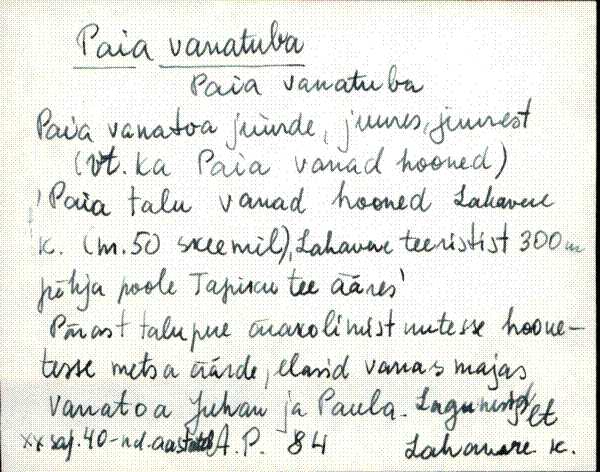 Paia vanatuba
Paia vanatuba
Paia vanatoa juurde, juures, juurest
(vt. ka Paia vanad hooned)
'Paia talu vanad hooned Lahavere
k. (m. 50 skeemil), Lahavere teeristist 300 m
põhja poole Tapiku tee ääres'
Pärast talupere ärakolimist uutesse hoone-
tesse metsa äärde, elasid vanas majas
vanatoa Juhan ja Paula. Lagunesid
xx saj. 40-nd. aastatel A.P. 84 Plt
Lahavere k.